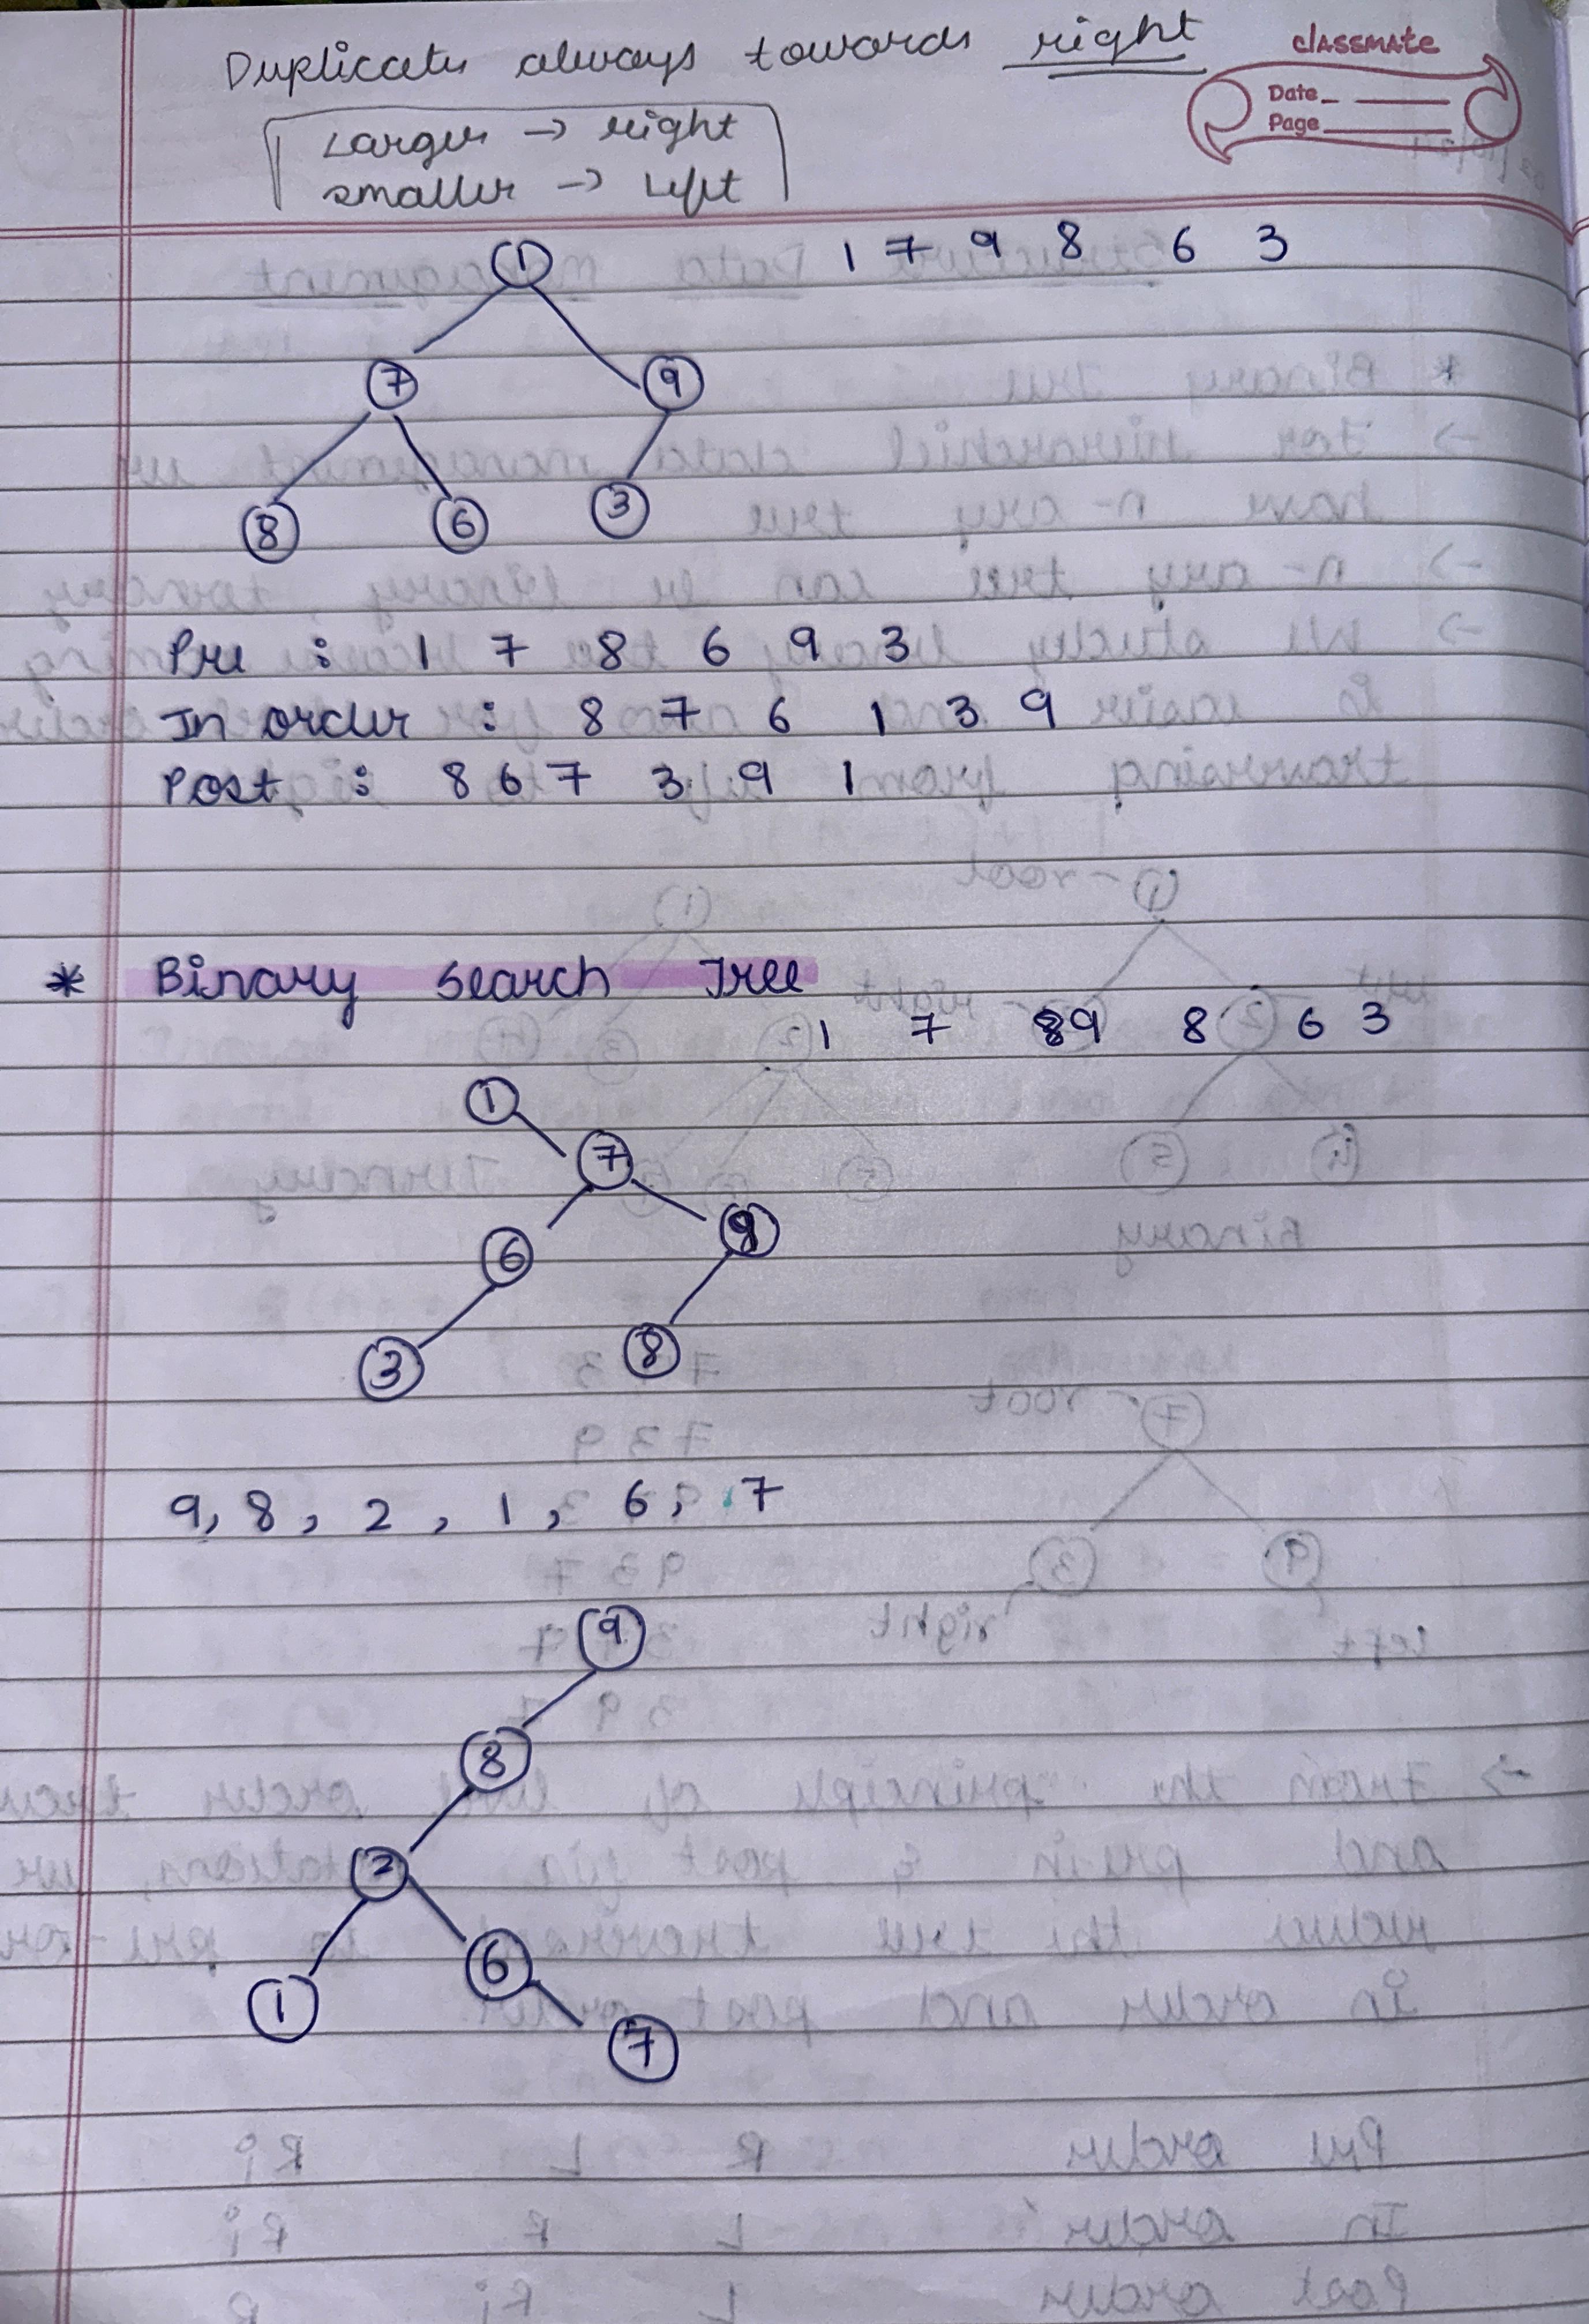 Duplicates always towards right
classmate
Date
Page
Larger → right
smaller → Left
1 7 9 8 6 3
1
7 9
8 6 3
Pre : 1 7 8 6 9 3
In order : 8 7 6 1 3 9
Post : 8 6 7 3 9 1
* Binary Search Tree
1 7 9 8 6 3
1
7
6 9
3 8
9, 8, 2, 1, 6, 7
9
8
2
1 6
7